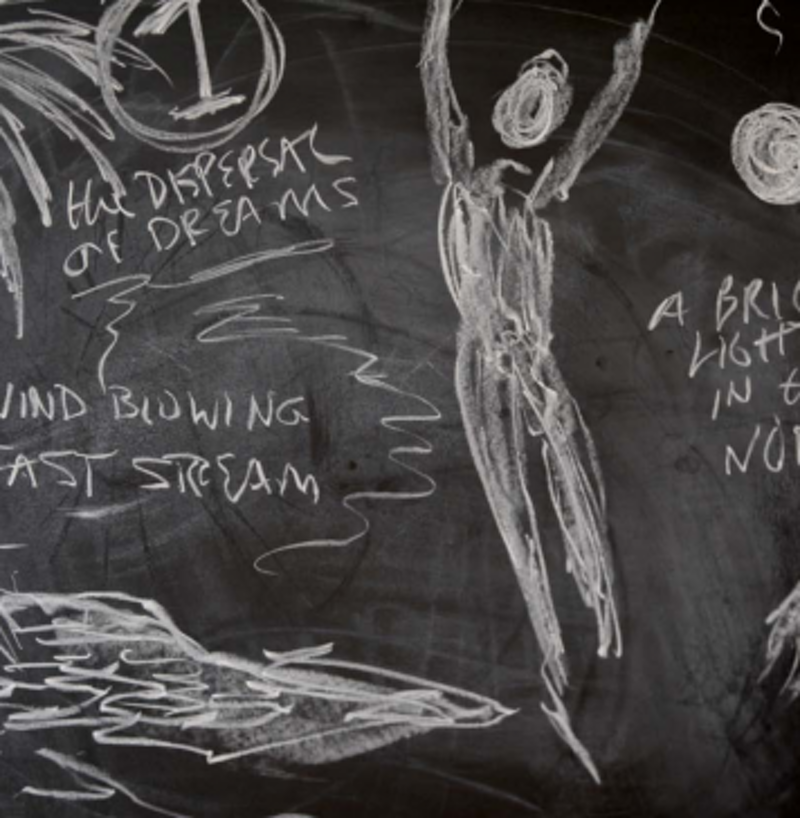 1
the DISPERSAL
OF DREAMS
WIND BLOWING
FAST STREAM
A BRIG
LIGHT
IN t
NO